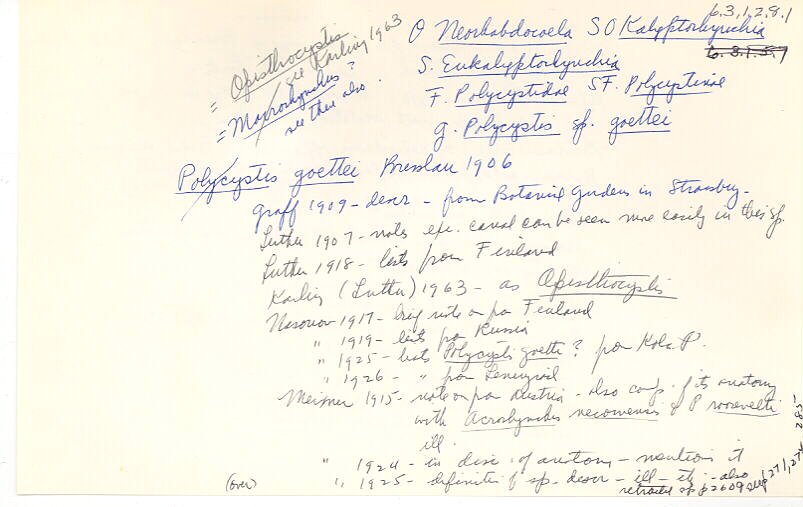 6.3.1.2.8.1
O Neorhabdocoela SO Kalyptorhynchia
6.3.1.5.7
S. Eukalyptorhynchia
F. Polycystidae SF. Polycystinae
g. Polycystis sp. goettei
= Opisthocystis
see Karling 1963
= Macrorhynchus?
see there also.
Polycystis goettei Bresslau 1906
Graff 1909 - descr - from Botanical Gardens in Strassburg -
Luther 1907 - notes exc. canal can be seen more easily in this sp.
Luther 1918 - lists from Finland
Karling (Luther) 1963 - as Opisthocystis
Nasonov 1917 - brief note on fr Finland
" 1919 - lists fr Russia
" 1925 - lists Polycystis goettei? from Kola P.
" 1926 - " from Leningrad
Meixner 1915 - note on fr Austria - also comp. of its anatomy
with Acrorhynchus neocomensis & P roosevelti
ill.
" 1924 - in disc. of anatomy - mentions it
(over)
" 1925 - definition of sp. descr - ill - etc - also
retracted sp p 260 9
271, 274
285-